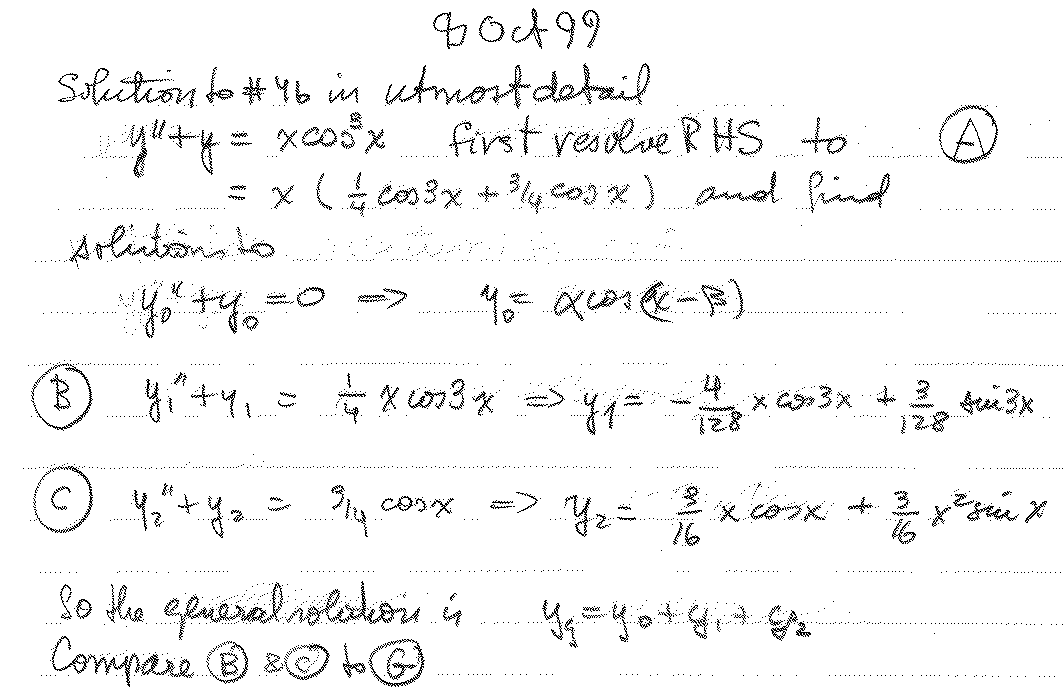 8 Oct 99
Solution to #4b in utmost detail
y" + y = x cos³x first resolve RHS to Ⓐ
= x ( 1/4 cos 3x + 3/4 cos x ) and find
solutions to
y₀" + y₀ = 0 => y₀ = α cos(x - β)
Ⓑ y₁" + y₁ = 1/4 x cos 3x => y₁ = - 4/128 x cos 3x + 3/128 sin 3x
Ⓒ y₂" + y₂ = 3/4 cos x => y₂ = 3/16 x cos x + 3/16 x² sin x
So the general solution is y_g = y₀ + y₁ + y₂
Compare Ⓑ & Ⓒ to Ⓖ